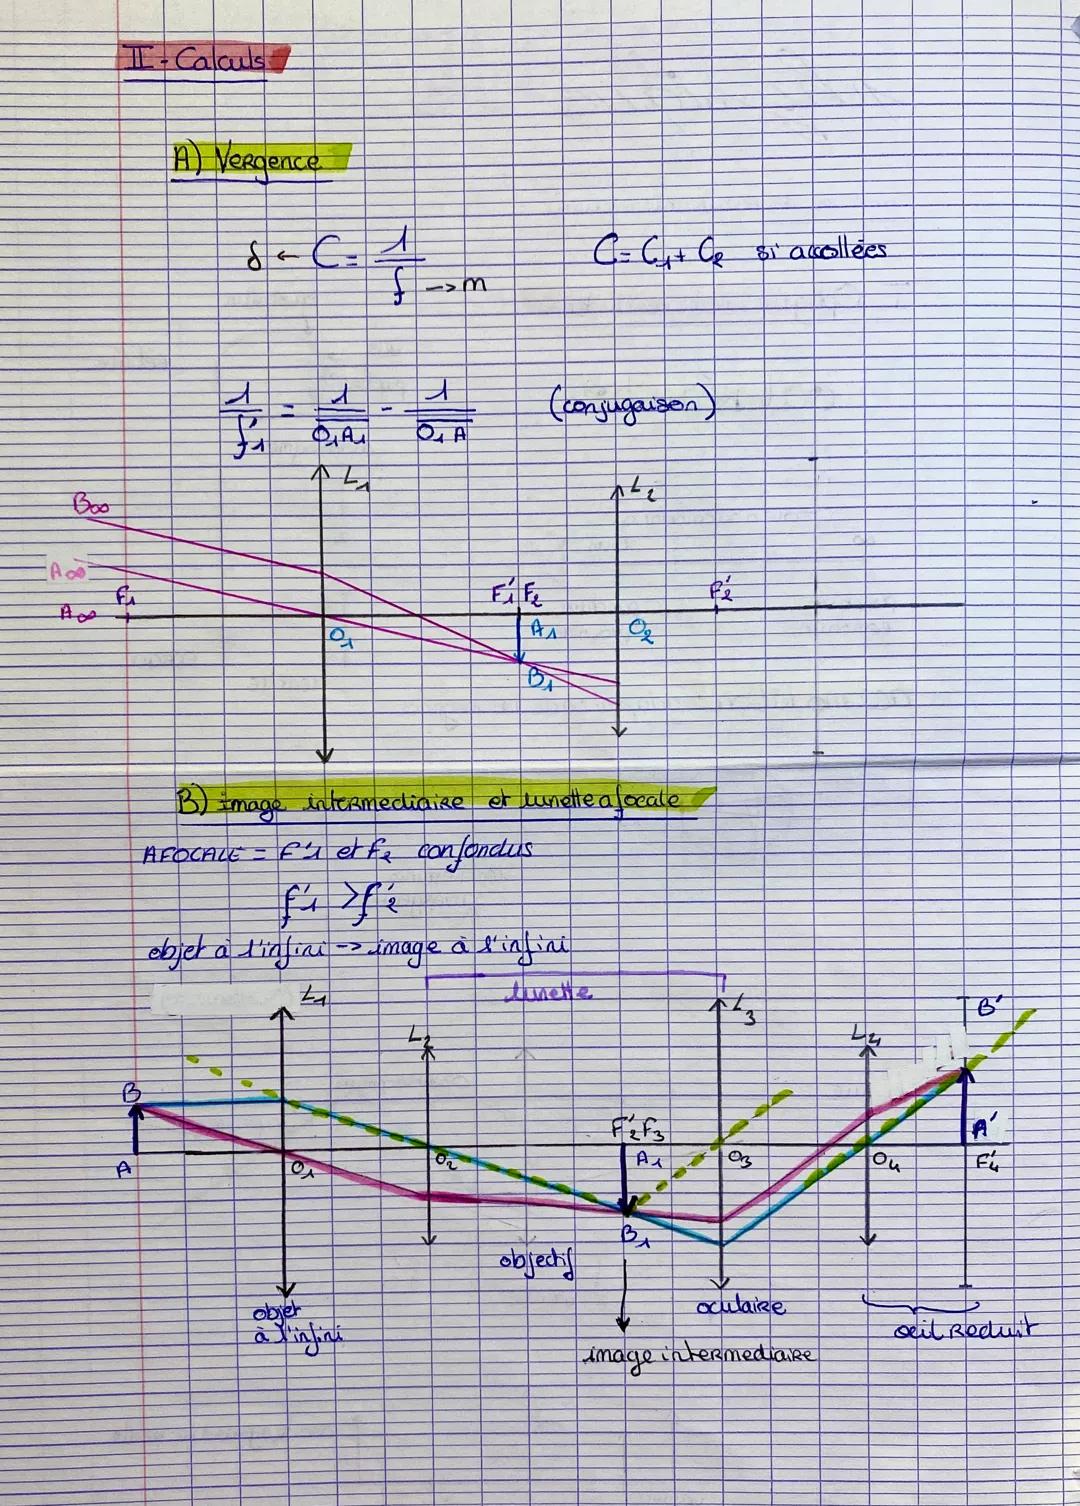 II - Calculs
A) Vergence
δ ← C = 1/f → m    C = C1 + C2 si accollées
1/f'1 = 1/O1A1 - 1/O1A    (conjugaison)
L1
L2
B∞
A∞
F1    F'1 F2    F'2
A∞
O1    A1    O2
B1
B) image intermediaire et lunette afocale
AFOCALE = F'1 et F2 confondus
f'1 > f'2
objet à l'infini -> image à l'infini
lunette
L1    L3    B'
L2    L4
B
F'2 F3    A'
A    O1    O2    A1    O3    O4    F'4
B1
objectif
objet    oculaire
à l'infini    œil Reduit
image intermediaire